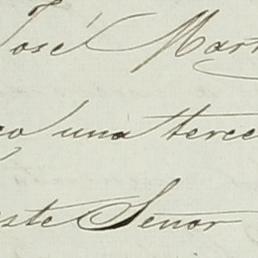 José Mar
go una terce
este Señor